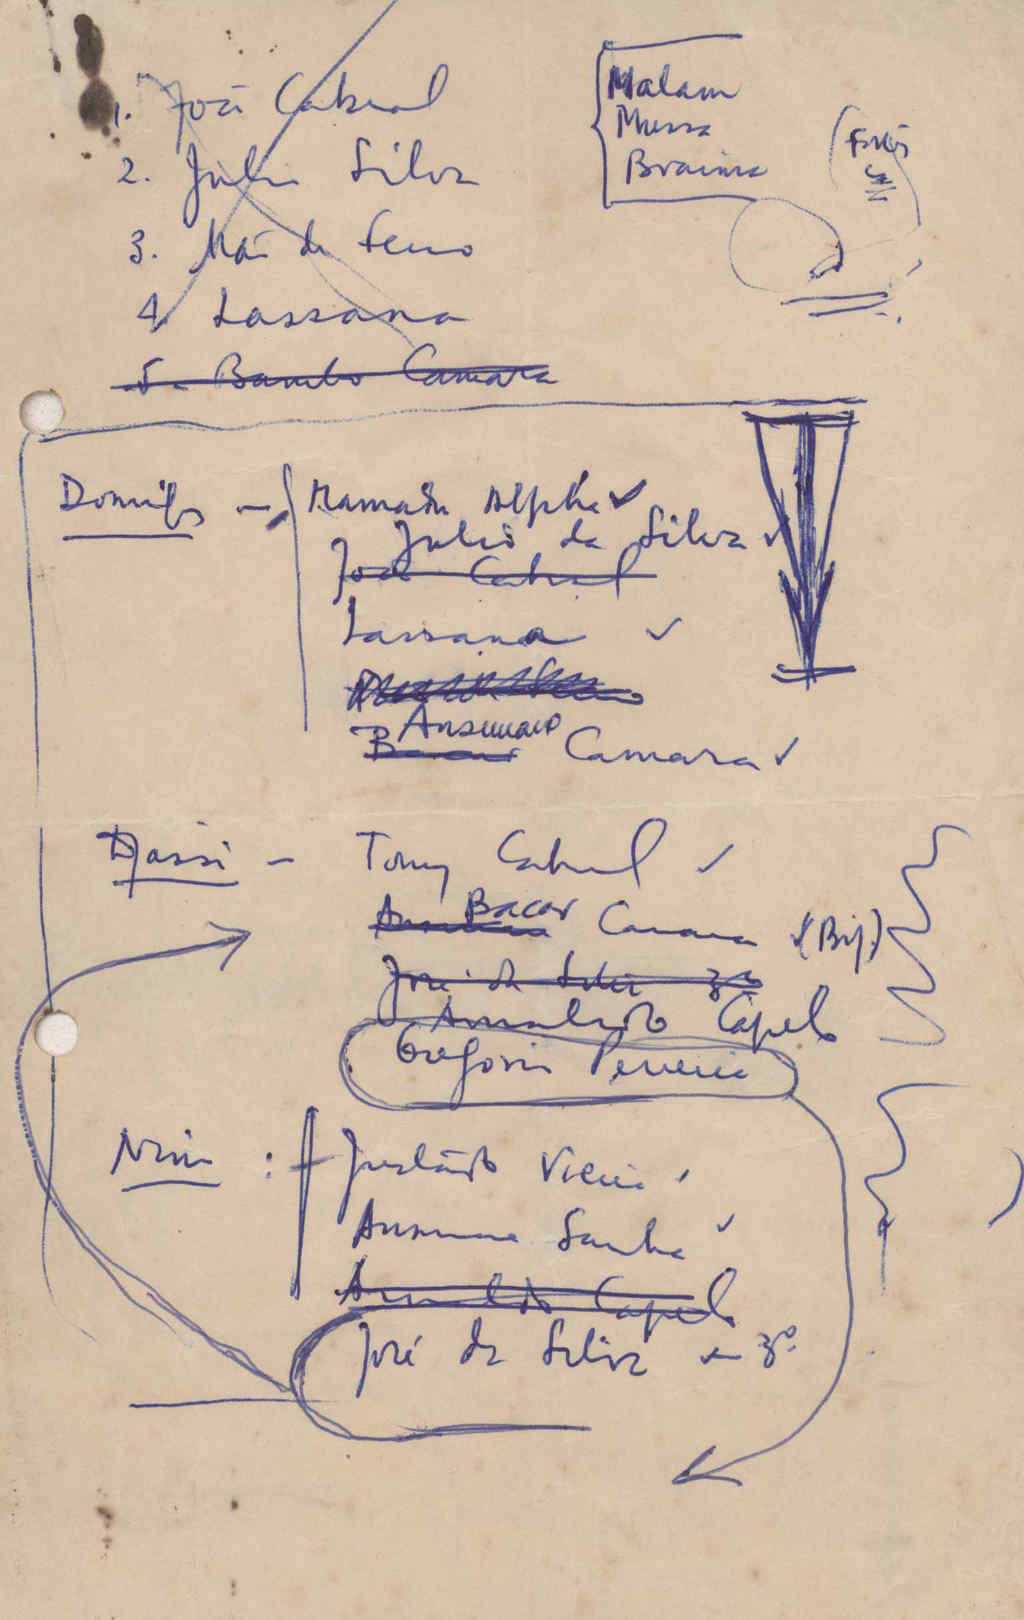 1. José Cabral
2. Julio Silva
3. de
4. Lassana
5. Bambo Camara
Malam
Mussa
Braima
Domingos — Mamadu Alpha ✓
Julio da Silva ✓
José Cabral
Lassana ✓
Ansumane
Bacar Camara ✓
Djassi — Tony Cabral ✓
Bacar
Camara (Bij.)
José da Silva 3º
Arnaldo Capelo
Gregorio Perreira
Nino : Justado Vieira
Ansumane Sanha ✓
Arnaldo Capelo
José da Silva — 3º.